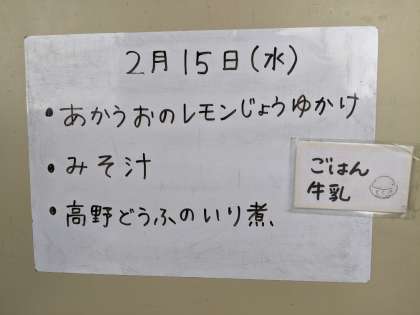 2月15日(水)
・あかうおのレモンじょうゆかけ
・みそ汁
・高野どうふのいり煮、
ごはん
牛乳